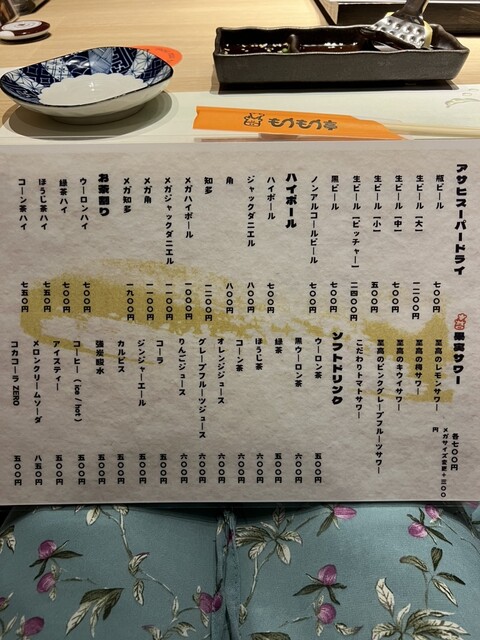 アサヒスーパードライ
瓶ビール 七〇〇円
生ビール【大】 一二〇〇円
生ビール【中】 七〇〇円
生ビール【小】 五〇〇円
生ビール【ピッチャー】 二四〇〇円
黒ビール 七〇〇円
ノンアルコールビール 七〇〇円
ハイボール
ハイボール 七〇〇円
ジャックダニエル 八〇〇円
角 八〇〇円
知多 一二〇〇円
メガハイボール 一〇〇〇円
メガジャックダニエル 一一〇〇円
メガ角 一一〇〇円
メガ知多 一九〇〇円
お茶割り
ウーロンハイ 七〇〇円
緑茶ハイ 七〇〇円
ほうじ茶ハイ 七五〇円
コーン茶ハイ 七五〇円
果実サワー
各七〇〇円
メガサイズ変更+三〇〇円
至高のレモンサワー
至高の梅サワー
至高のキウイサワー
至高のピンクグレープフルーツサワー
こだわりトマトサワー
ソフトドリンク
ウーロン茶 五〇〇円
黒ウーロン茶 六〇〇円
緑茶 五〇〇円
ほうじ茶 六〇〇円
コーン茶 六〇〇円
オレンジジュース 六〇〇円
グレープフルーツジュース 六〇〇円
りんごジュース 六〇〇円
コーラ 五〇〇円
ジンジャーエール 五〇〇円
カルピス 五〇〇円
強炭酸水 五〇〇円
コーヒー(ice / hot) 五〇〇円
アイスティー 五〇〇円
メロンクリームソーダ 八五〇円
コカコーラ ZERO 五〇〇円